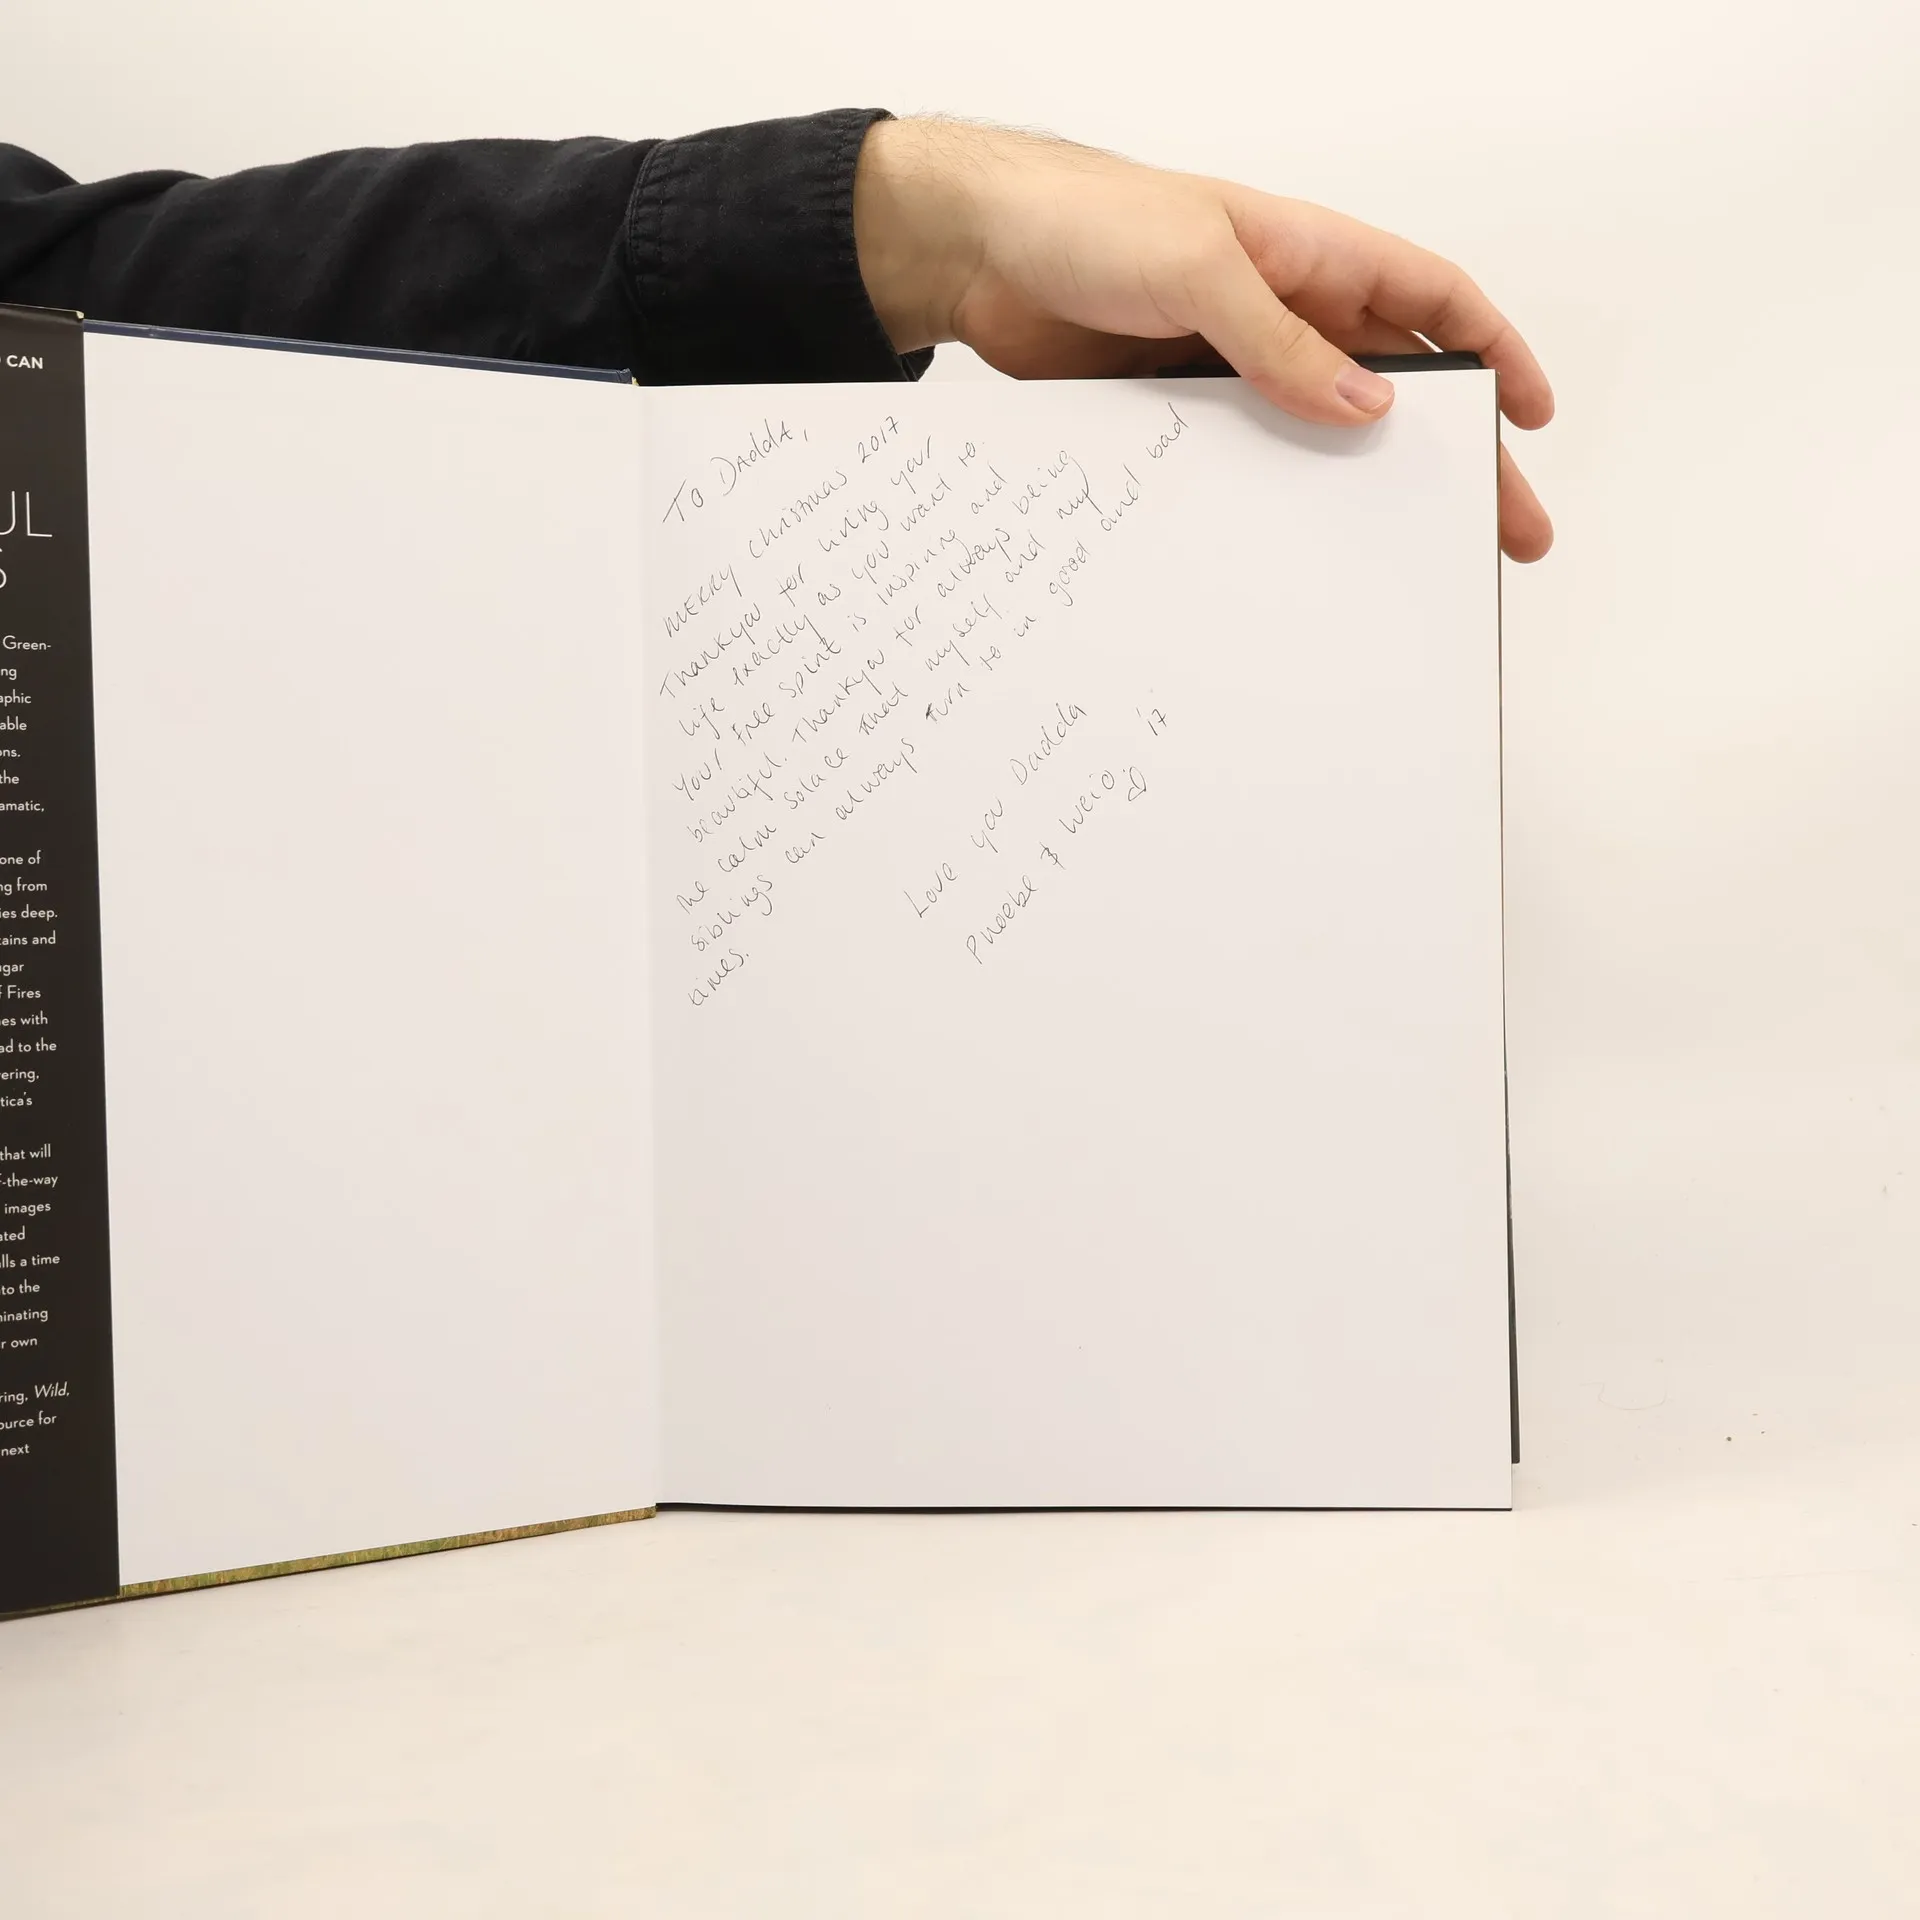 CAN
UL
S
Green-
ng
aphic
able
ons.
the
amatic,
one of
ng from
ies deep.
tains and
ugar
f Fires
es with
ad to the
vering,
tica's
that will
f-the-way
images
ated
lls a time
to the
minating
r own
ring, Wild,
ource for
next
TO DADdA,
MERRY Christmas 2017
Thankya for living your
life exactly as you want to.
Your free spirit is inspiring and
beautiful. Thankya for always being
the calm solace that myself and my
siblings can always turn to in good and bad
times.
Love ya Dadda
Phoebe & '17